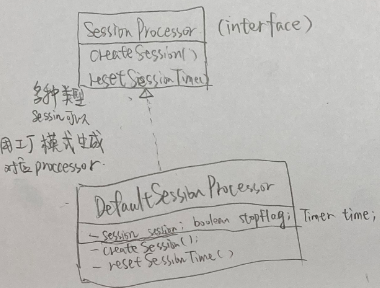 SessionProcessor (interface)
createSession()
resetSessionTimer
多种类型
Session可以
用工厂模式生成
对应processor.
DefaultSessionProcessor
- session session; boolean stopflag; Timer time;
- createSession();
- resetSessionTime()